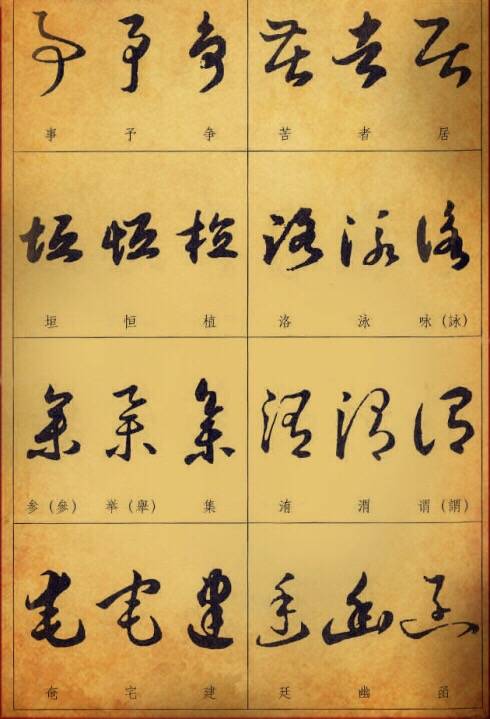 事 予 争 苦 者 居
垣 恒 植 洛 泳 咏（詠）
参（參） 举（舉） 集 洧 渭 谓（謂）
奄 宅 建 廷 幽 函